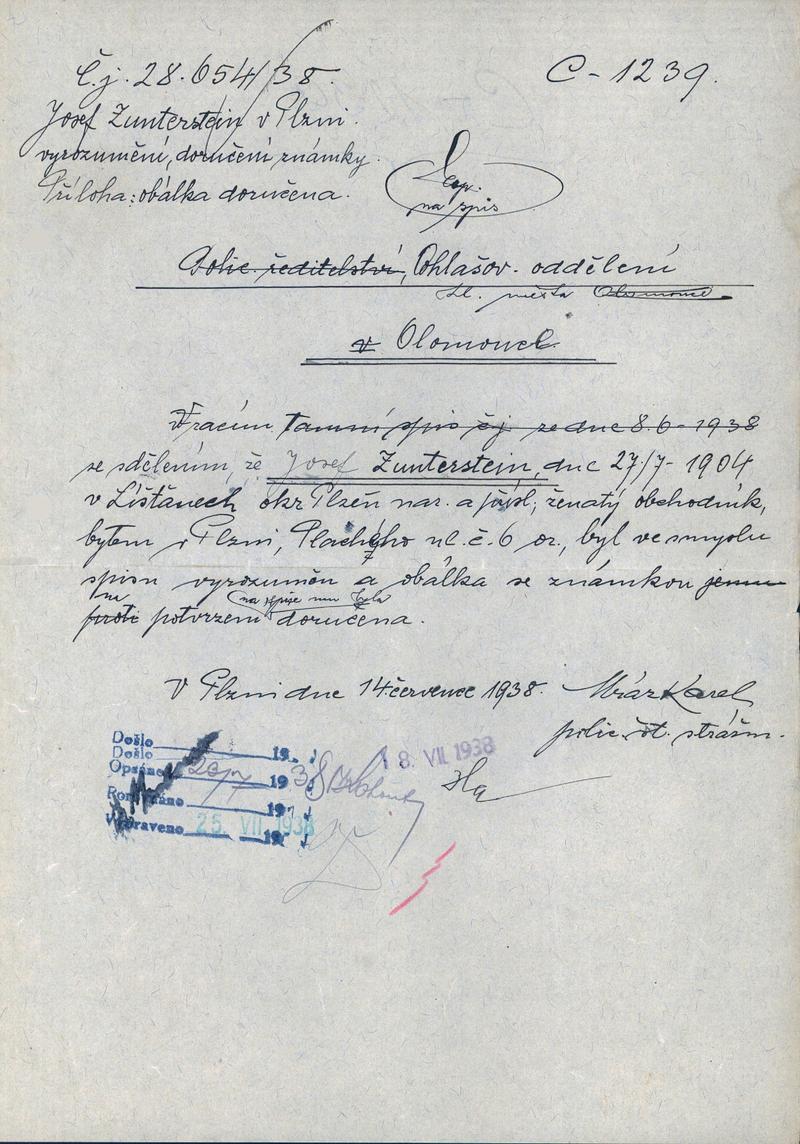 Č.j. 28.654/38.
C - 1239.
Josef Zunterstein v Plzni.
vyrozumění, doručení známky.
Příloha: obálka doručena.
na spis
Polic. ředitelství, Ohlašov. oddělení
hl. města Olomouce
v Olomouci
Vracím tamní spis čj. ze dne 8.6-1938
se sdělením, že Josef Zunterstein, dne 27/7-1904
v Líšťanech okr Plzeň nar. a přísl., ženatý obchodník,
bytem v Plzni, Plachého ul. č. 6 or., byl ve smyslu
spisu vyrozuměn a obálka se známkou jemu
na
proti potvrzení doručena.
V Plzni dne 14 července 1938. Mráz Karel
polic. st. strážm.
Došlo 19
Došlo
Opsáno 19 38
18. VII 1938
19
Vypraveno 25. VII 1938
19